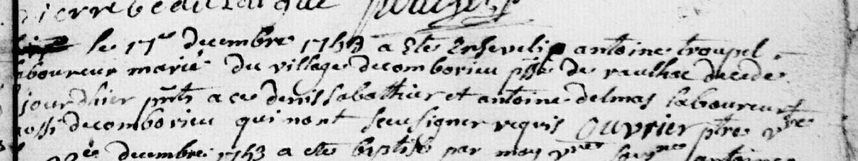 pierre
le 17e decembre 1753 a ete Enseveli antoine troupel
laboureur marié du village de comborieu psse de raulhac decedé
jourdhier pnts a ce denis Sabathier et antoine delmas laboureurs
aussi de comborieu qui nont sceu signer requis Ouvrier ptre vre
decembre 1753 a ete baptisé par moy vre